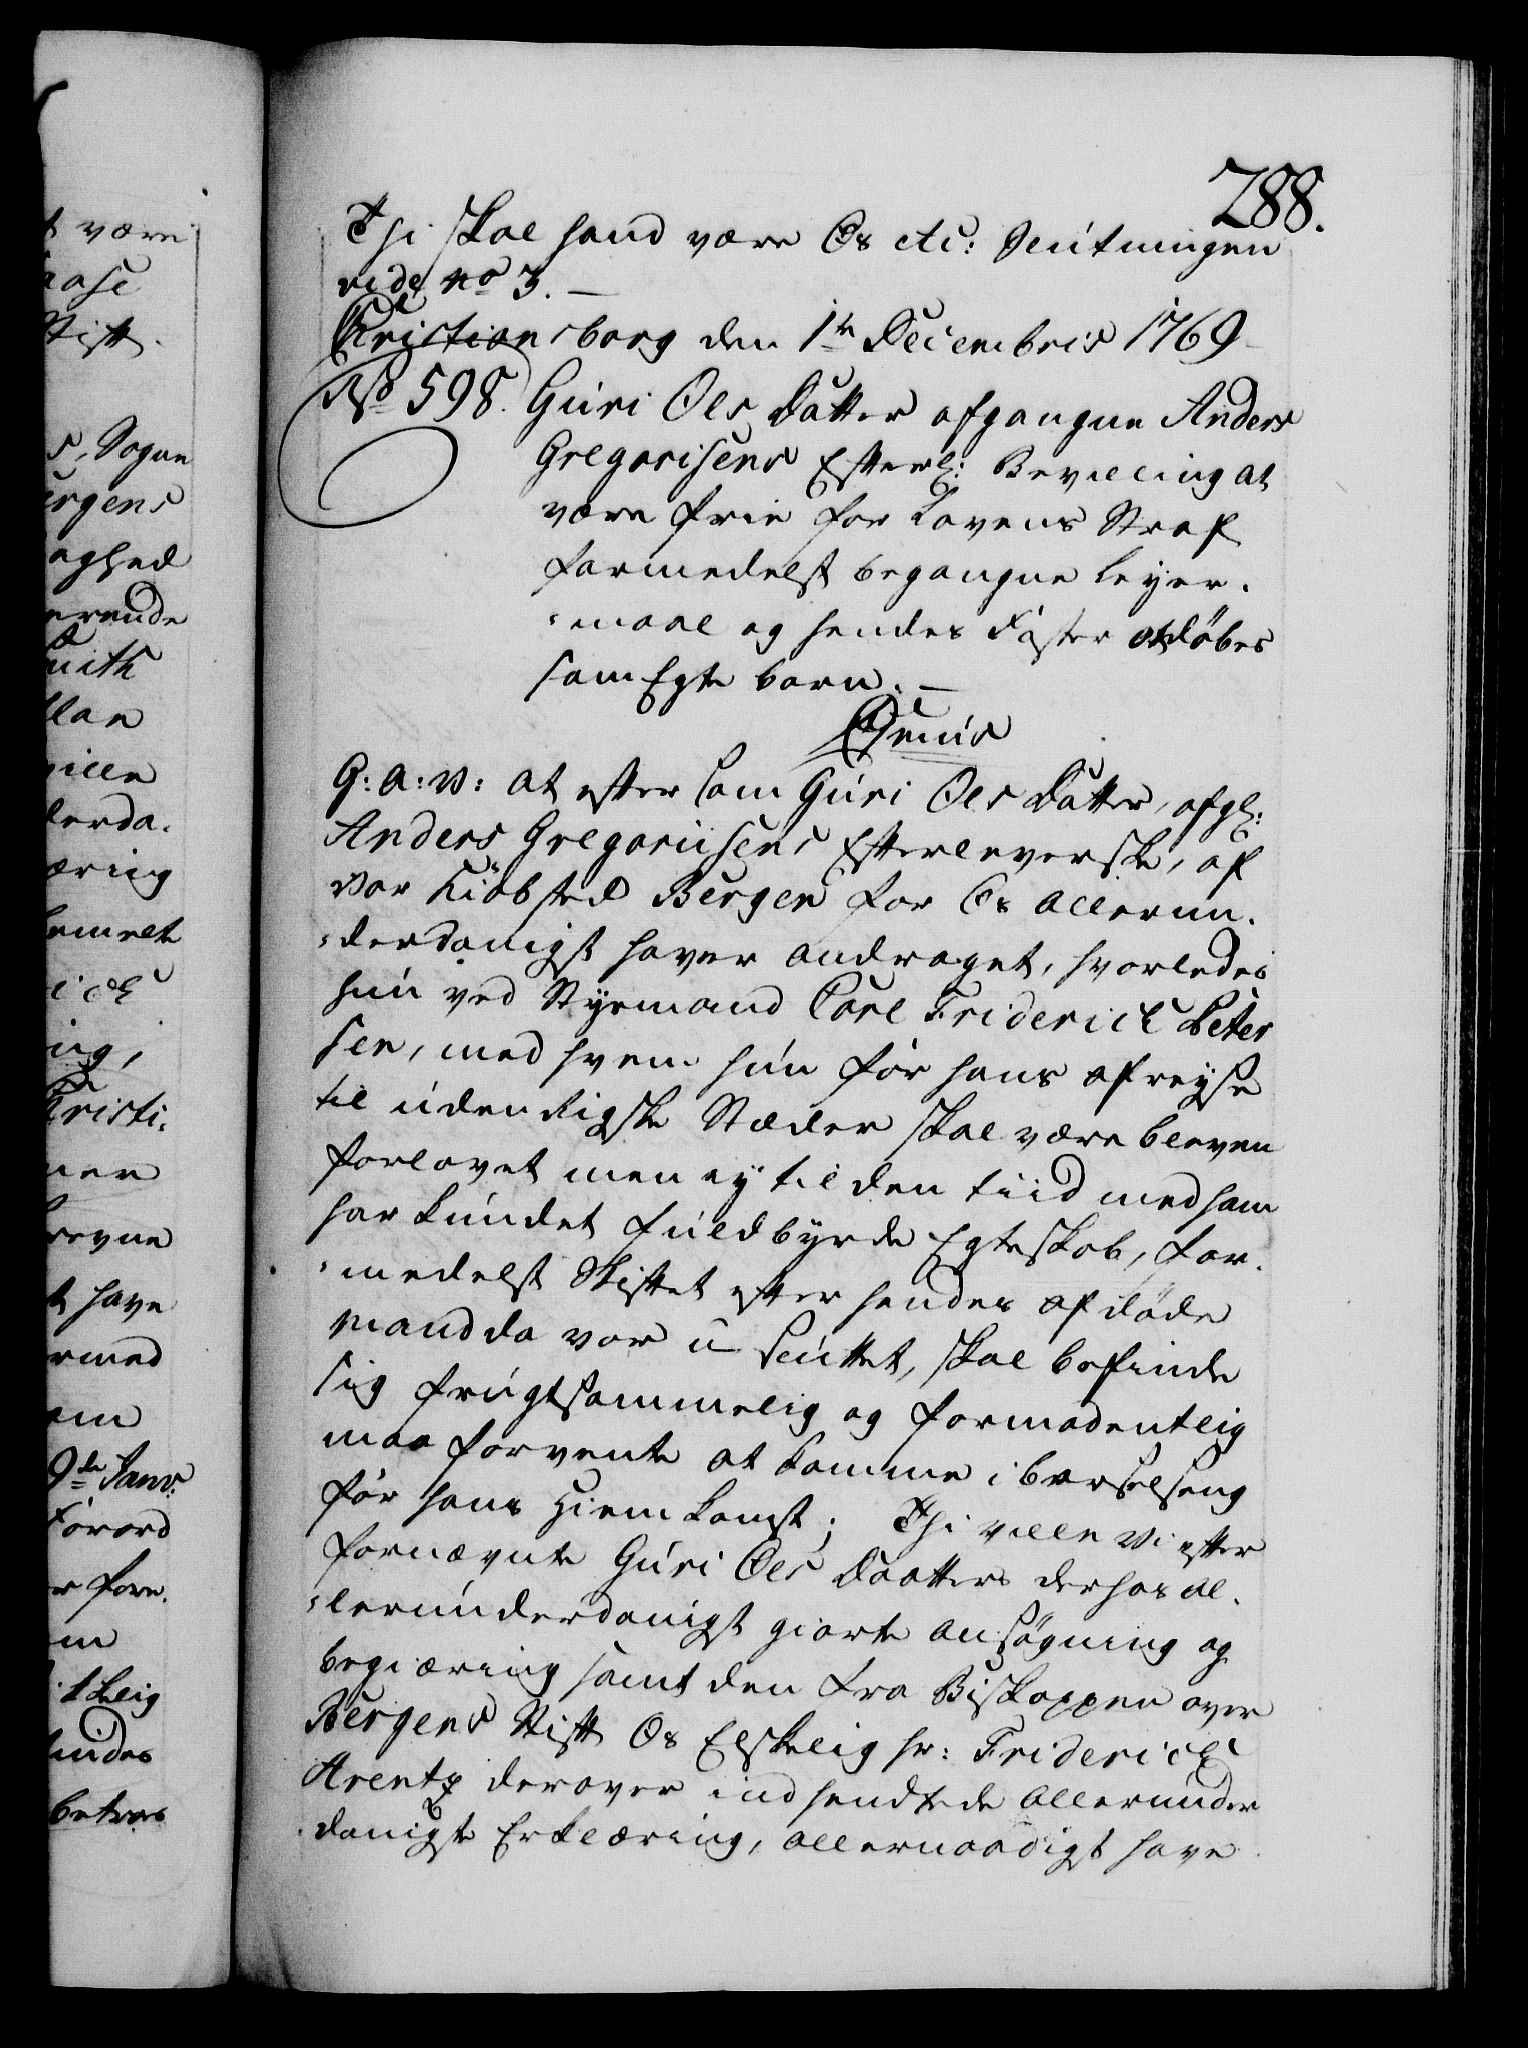 288.
Thi skal hand være Os etc: Slutningen
vide No 3. —
Christiansborg den 1te Decembris 1769
No 598. Guri Ols Datter afgangne Anders
Gregorisens Efterl: Bevilling at
være frie for Lovens Straf
formedelst begangne Leyer-
-maal og hendes Foster at döbes
som Egte barn. —
Genus
G: a: V: at eftersom Guri Ols Datter, afg:
Anders Gregoriisens Efterleverske, af
Vor Kiöbsted Bergen for Os allerun-
-derdanigst haver andraget, hvorledes
hun ved Styrmand Carl Friderich Peter
sen, med hvem hun för hans afreyse
til udenrigske Stæder skal være bleven
forlovet men ey til den tiid med ham
har kundet fuldbyrde Egteskab, for-
-medelst Skiftet efter hendes afdöde
Mand da var u-sluttet, skal befinde
sig frugtsommelig og formodentlig
maa forvente at komme i barselseng
för hans Hiemkomst; Thi ville Vi efter
fornævnte Guri Ols Daatters derhos al-
-lerunderdanigst giorte ansögning og
begiæring samt den fra Biskoppen over
Bergens Stift Os Elskelig Hr: Friderich
Arentz derover indsendte allerunder
danigste Erklæring, allernaadigst have